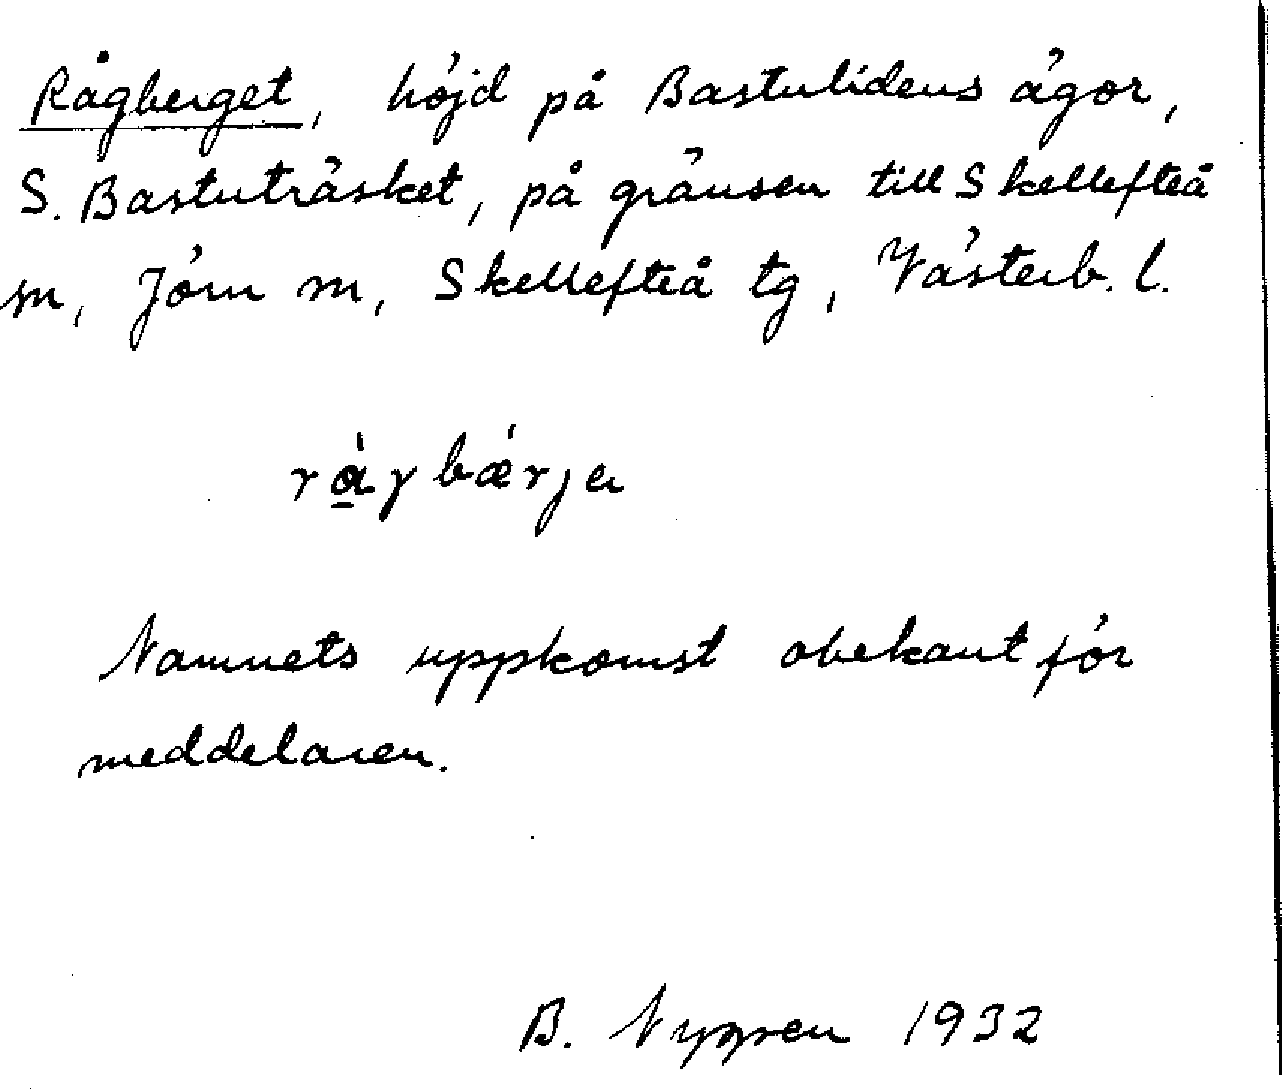 Rågberget, höjd på Bastulidens ägor,
S. Bastuträsket, på gränsen till Skellefteå
sn, Jörn sn, Skellefteå tg, Västerb. l.
rɑ̱̀γbǽrjɐ
Namnets uppkomst obekant för
meddelaren.
B. Nygren 1932